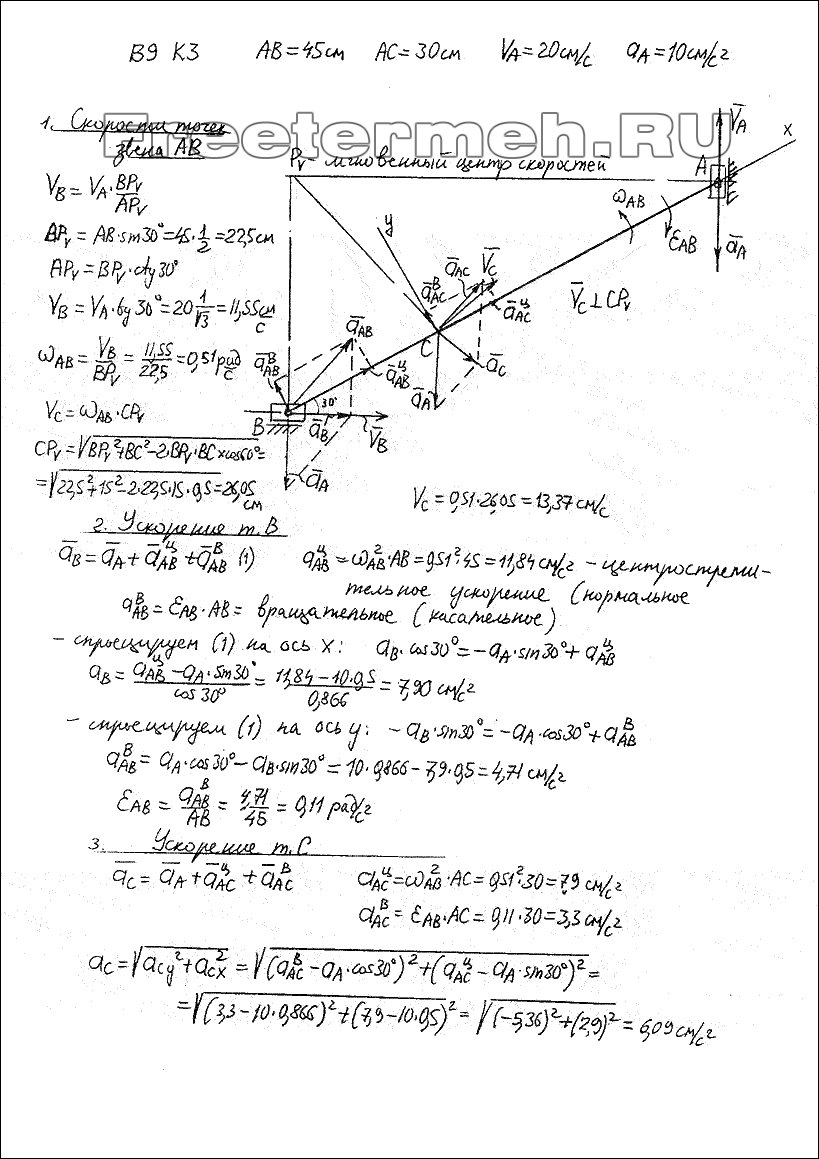 В9 К3 AB=45см AC=30см VA=20см/с aA=10см/с2
Freetermeh.RU
1. Скорости точек
звена АВ
Pv - мгновенный центр скоростей
VB = VA · BPv/APv
BPv = AB·sin30°=45·1/2=22,5см
APv = BPv·ctg30°
VB = VA·tg30°=20·1/√3=11,55см/с
ωAB = VB/BPv = 11,55/22,5 = 0,51рад/с
VC = ωAB·CPv
CPv=√BPv²+BC²-2·BPv·BC×cos60°=
=√22,5²+15²-2·22,5·15·0,5=26,05
см
VA
x
A
ωAB
εAB
aA
y
aAC
VC
aᴮAC
aᶜAC
VC⊥CPv
C
aC
aA
aAB
aᴮAB
aᶜAB
30°
B
aB
VB
aA
VC = 0,51·26,05 = 13,37см/с
2. Ускорение т.В
aB = aA + aᶜAB + aᴮAB (1) aᶜAB = ω²AB·AB = 0,51²·45 = 11,84см/с2 - центростреми-
тельное ускорение (нормальное
aᴮAB = εAB·AB = вращательное (касательное)
- спроецируем (1) на ось x: aB·cos30° = -aA·sin30° + aᶜAB
aB = aᶜAB - aA·sin30°/cos30° = 11,84-10·0,5/0,866 = 7,90 см/с2
- спроецируем (1) на ось y: -aB·sin30° = -aA·cos30° + aᴮAB
aᴮAB = aA·cos30° - aB·sin30° = 10·0,866-7,9·0,5=4,71 см/с2
εAB = aᴮAB/AB = 4,71/45 = 0,11 рад/с2
3. Ускорение т.С
aC = aA + aᶜAC + aᴮAC aᶜAC = ω²AB·AC = 0,51²·30 = 7,9 см/с2
aᴮAC = εAB·AC = 0,11·30 = 3,3 см/с2
aC = √aCy²+aCx² = √(aᴮAC - aA·cos30°)² + (aᶜAC - aA·sin30°)² =
= √(3,3-10·0,866)² + (7,9-10·0,5)² = √(-5,36)² + (2,9)² = 6,09 см/с2